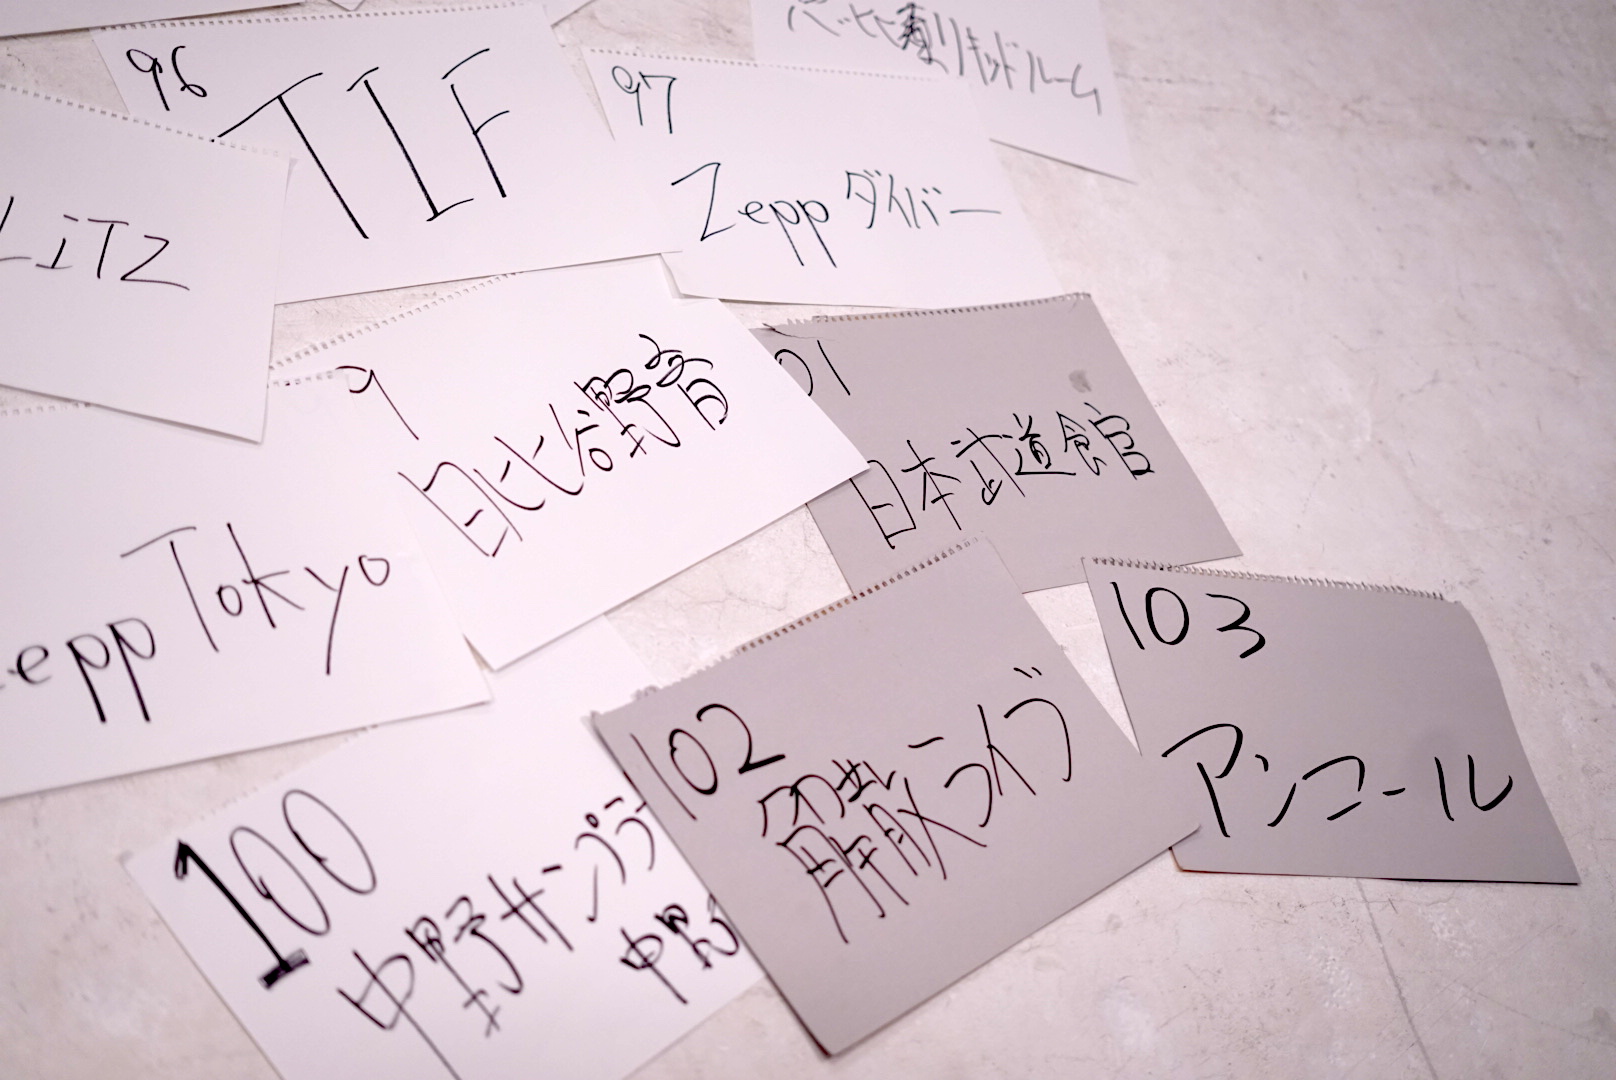 96
TIF
97
Zepp ダイバー
リキッドルーム
LiTZ
9
日比谷野音
01
日本武道館
epp Tokyo
102
解散ライブ
103
アンコール
100
中野サンプラ
中野